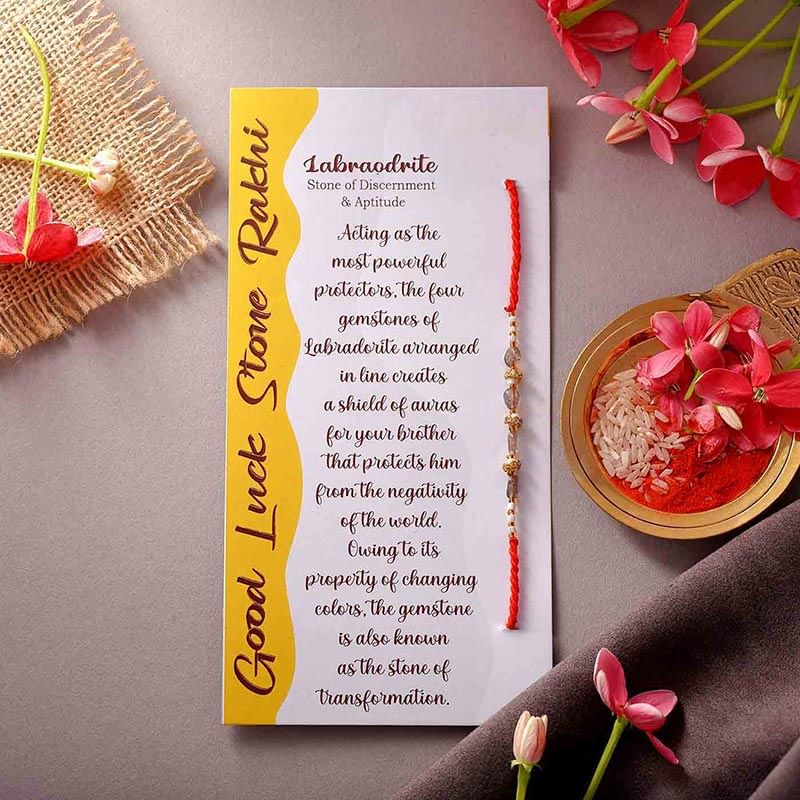 Good Luck Stone Rakhi
Labraodrite
Stone of Discernment
& Aptitude
Acting as the
most powerful
protectors, the four
gemstones of
Labradorite arranged
in line creates
a shield of auras
for your brother
that protects him
from the negativity
of the world.
Owing to its
property of changing
colors, the gemstone
is also known
as the stone of
transformation.